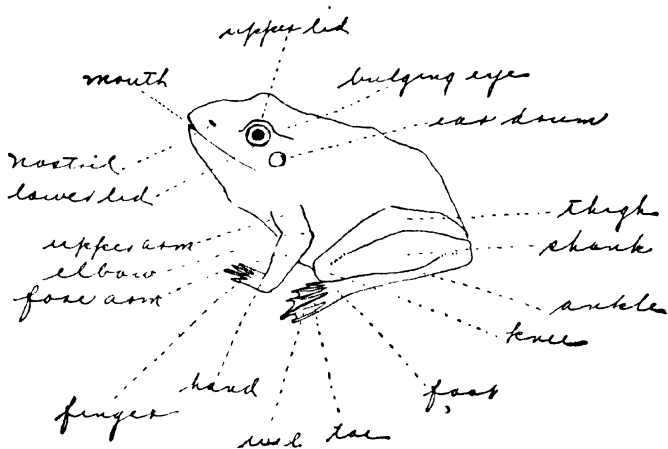 upper lid
mouth
bulging eyes
ear drum
nostril
lower lid
thigh
upper arm
shank
elbow
fore arm
ankle
knee
hand
foot
finger
web toe